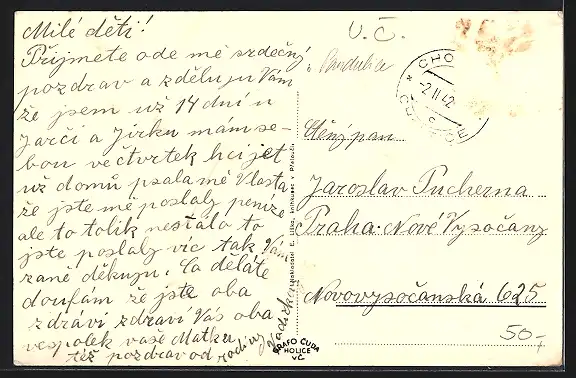 Milé děti!
Přijmete ode mě srdečný
pozdrav a zděluju Vám
že jsem už 14 dní u
Jarči a Jirku mám se-
bou ve čtvrtek hci jet
už domů psala mě Vlasta
že jste mě poslaly peníze
ale to tolik nestálo to
jste poslaly víc tak Vám
zaně děkuju. Co děláte
doufám že jste oba
zdrávi zdraví Vás oba
vespolek vaše Matka
též pozdrav od rodiny
U.Č.
Pardubice
CHO
-2.II.42
Ctěný pan
Jaroslav Pucherna
Praha-Nové Vysočany
Novovysočanská 625
50,-
Nakladatel E. Liško, knihkupec v Přelouči
GRAFO ČUDA
HOLICE
VČ